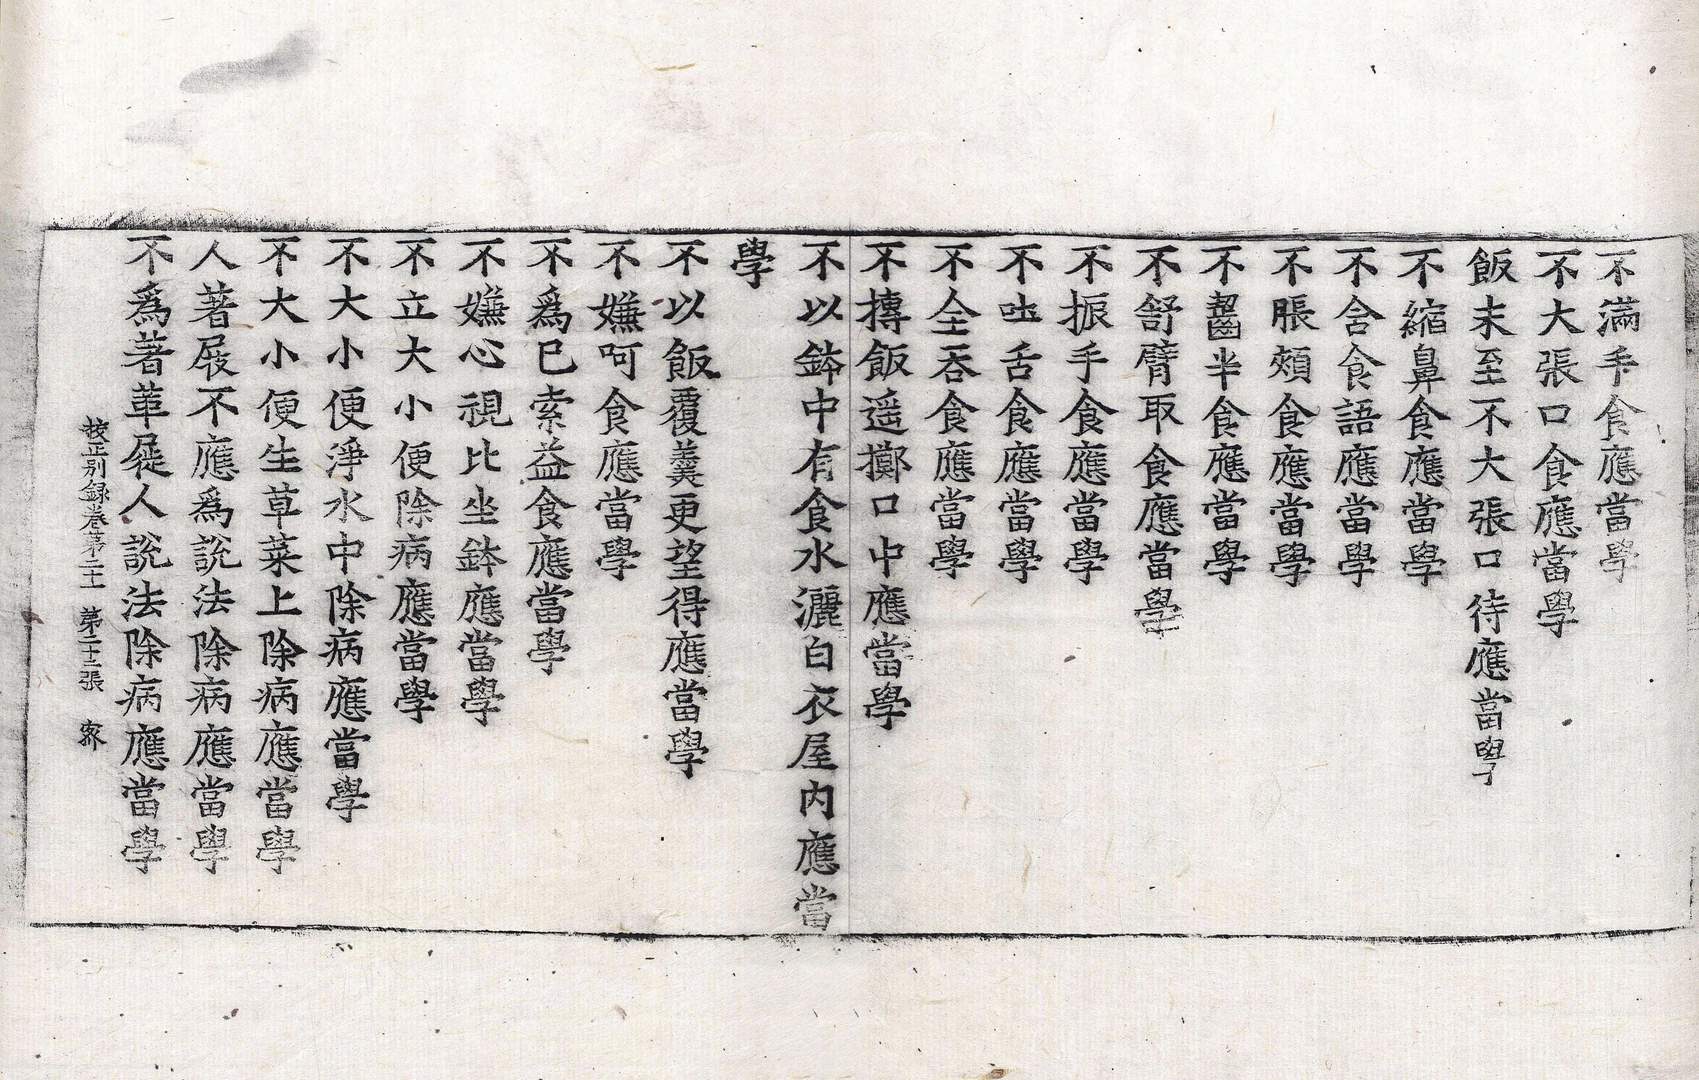 不滿手食應當學
不大張口食應當學
飯未至不大張口待應當學
不縮鼻食應當學
不含食語應當學
不脹頰食應當學
不齧半食應當學
不舒臂取食應當學
不振手食應當學
不吐舌食應當學
不全吞食應當學
不摶飯遥擲口中應當學
不以鉢中有食水灑白衣屋內應當
學
不以飯覆羹更望得應當學
不嫌呵食應當學
不爲已索益食應當學
不嫌心視比坐鉢應當學
不立大小便除病應當學
不大小便淨水中除病應當學
不大小便生草菜上除病應當學
人著屐不應爲說法除病應當學
不爲著革屣人說法除病應當學
校正別録卷第二十 第二十二張